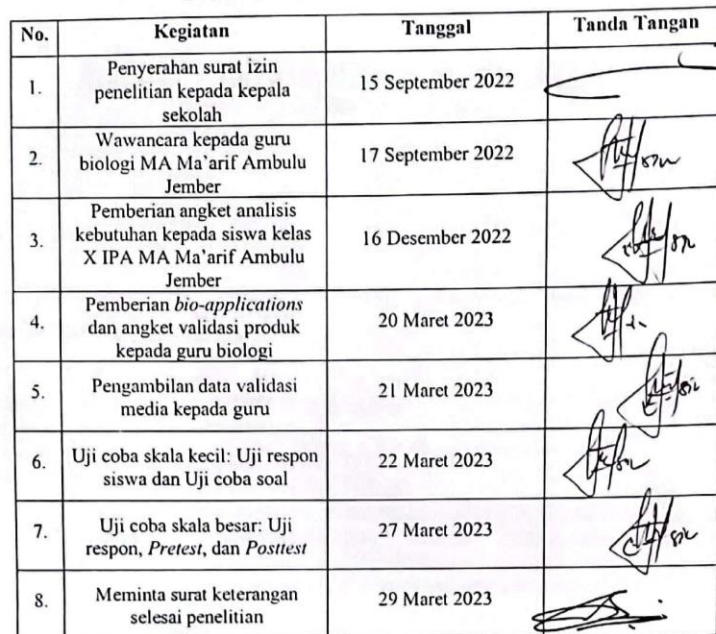 No. Kegiatan Tanggal Tanda Tangan
1. Penyerahan surat izin
penelitian kepada kepala
sekolah
15 September 2022
2. Wawancara kepada guru
biologi MA Ma'arif Ambulu
Jember
17 September 2022
3. Pemberian angket analisis
kebutuhan kepada siswa kelas
X IPA MA Ma'arif Ambulu
Jember
16 Desember 2022
4. Pemberian bio-applications
dan angket validasi produk
kepada guru biologi
20 Maret 2023
5. Pengambilan data validasi
media kepada guru
21 Maret 2023
6. Uji coba skala kecil: Uji respon
siswa dan Uji coba soal
22 Maret 2023
7. Uji coba skala besar: Uji
respon, Pretest, dan Posttest
27 Maret 2023
8. Meminta surat keterangan
selesai penelitian
29 Maret 2023